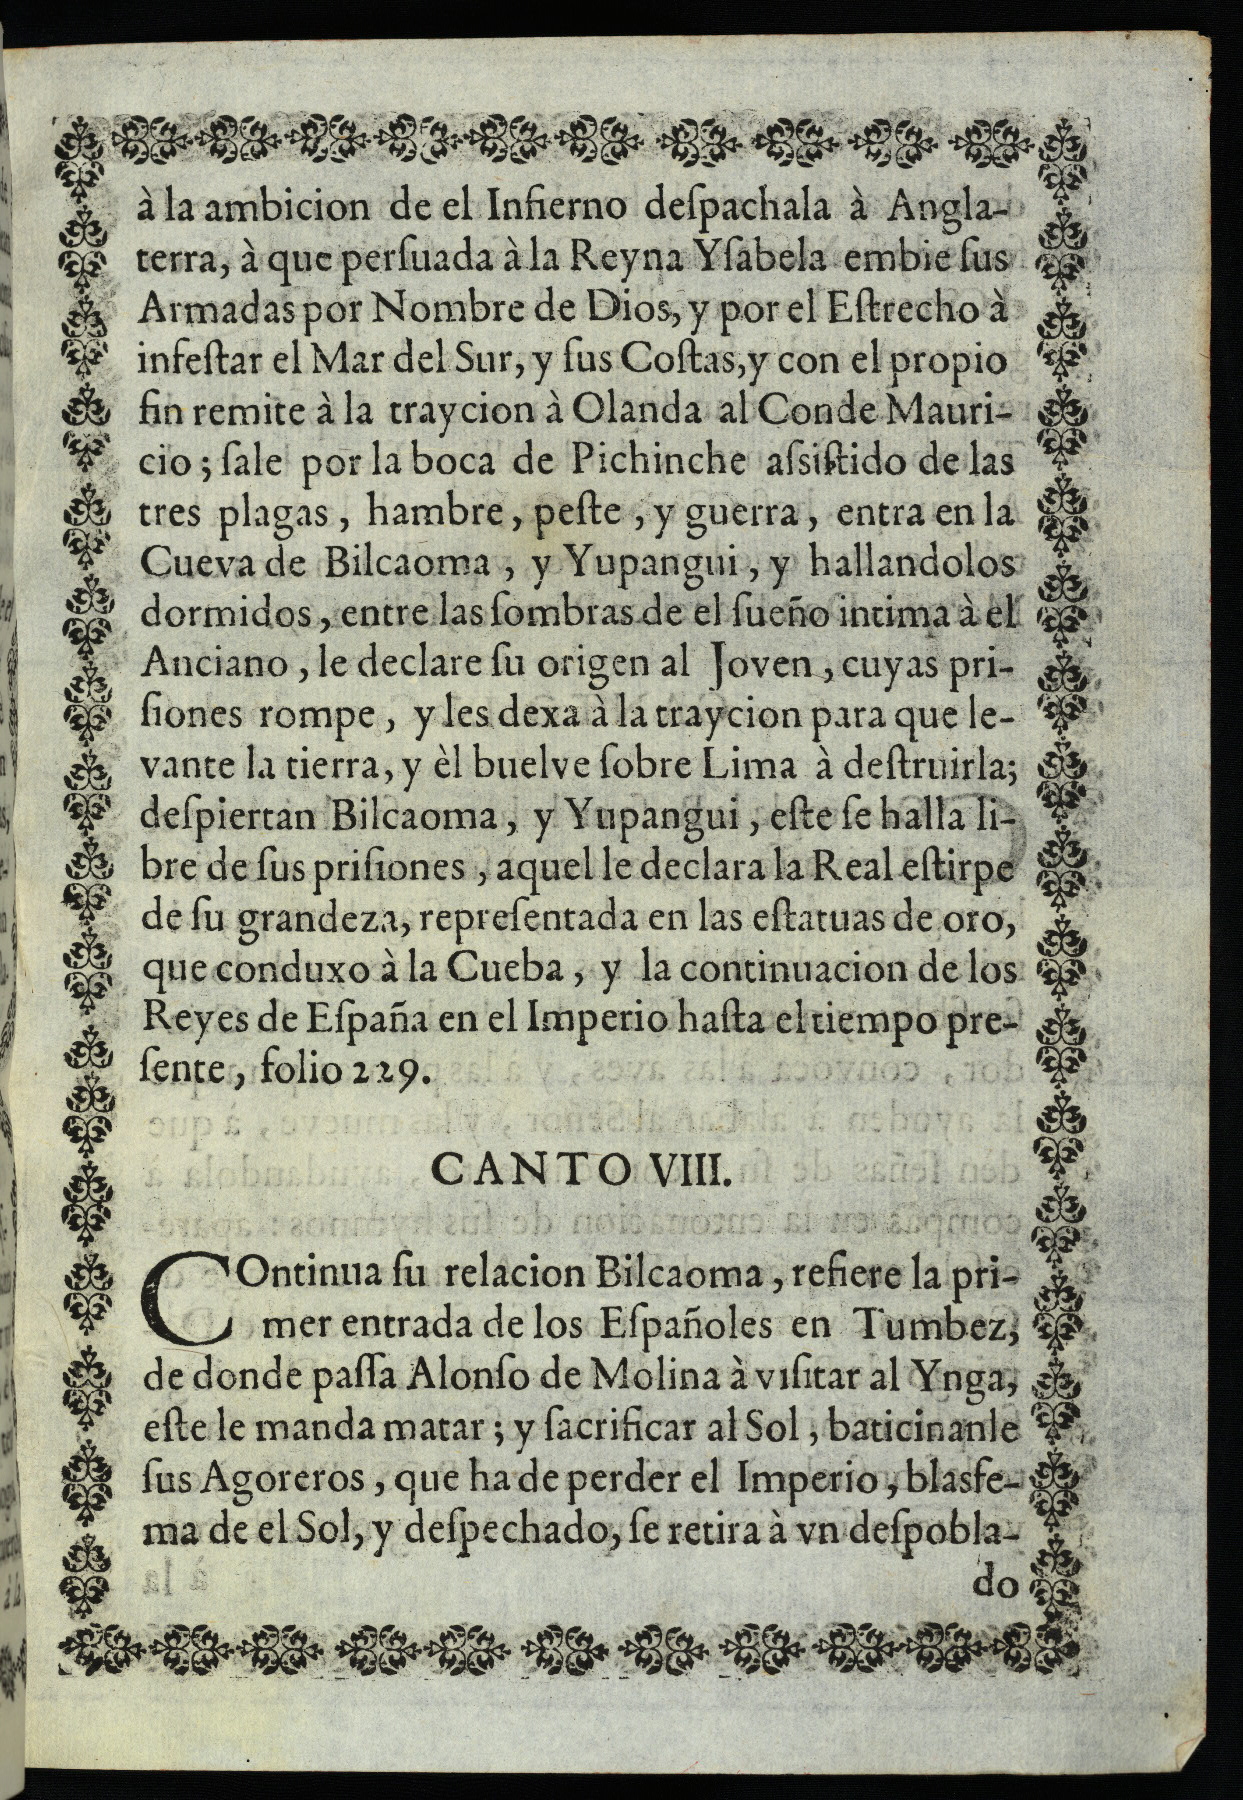 à la ambicion de el Infierno deſpachala à Angla-
terra, à que perſuada à la Reyna Yſabela embie ſus
Armadas por Nombre de Dios, y por el Eſtrecho à
infeſtar el Mar del Sur, y ſus Coſtas, y con el propio
fin remite à la traycion à Olanda al Conde Mauri-
cio; ſale por la boca de Pichinche aſsiſtido de las
tres plagas, hambre, peſte, y guerra, entra en la
Cueva de Bilcaoma, y Yupangui, y hallandolos
dormidos, entre las ſombras de el ſueño intima à el
Anciano, le declare ſu origen al Joven, cuyas pri-
ſiones rompe, y les dexa à la traycion para que le-
vante la tierra, y èl buelve ſobre Lima à deſtruirla;
deſpiertan Bilcaoma, y Yupangui, eſte ſe halla li-
bre de ſus priſiones, aquel le declara la Real eſtirpe
de ſu grandeza, repreſentada en las eſtatuas de oro,
que conduxo à la Cueba, y la continuacion de los
Reyes de Eſpaña en el Imperio haſta el tiempo pre-
ſente, folio 229.
CANTO VIII.
COntinua ſu relacion Bilcaoma, refiere la pri-
mer entrada de los Eſpañoles en Tumbez,
de donde paſſa Alonſo de Molina à viſitar al Ynga,
eſte le manda matar; y ſacrificar al Sol, baticinanle
ſus Agoreros, que ha de perder el Imperio, blasfe-
ma de el Sol, y deſpechado, ſe retira à vn deſpobla-
do